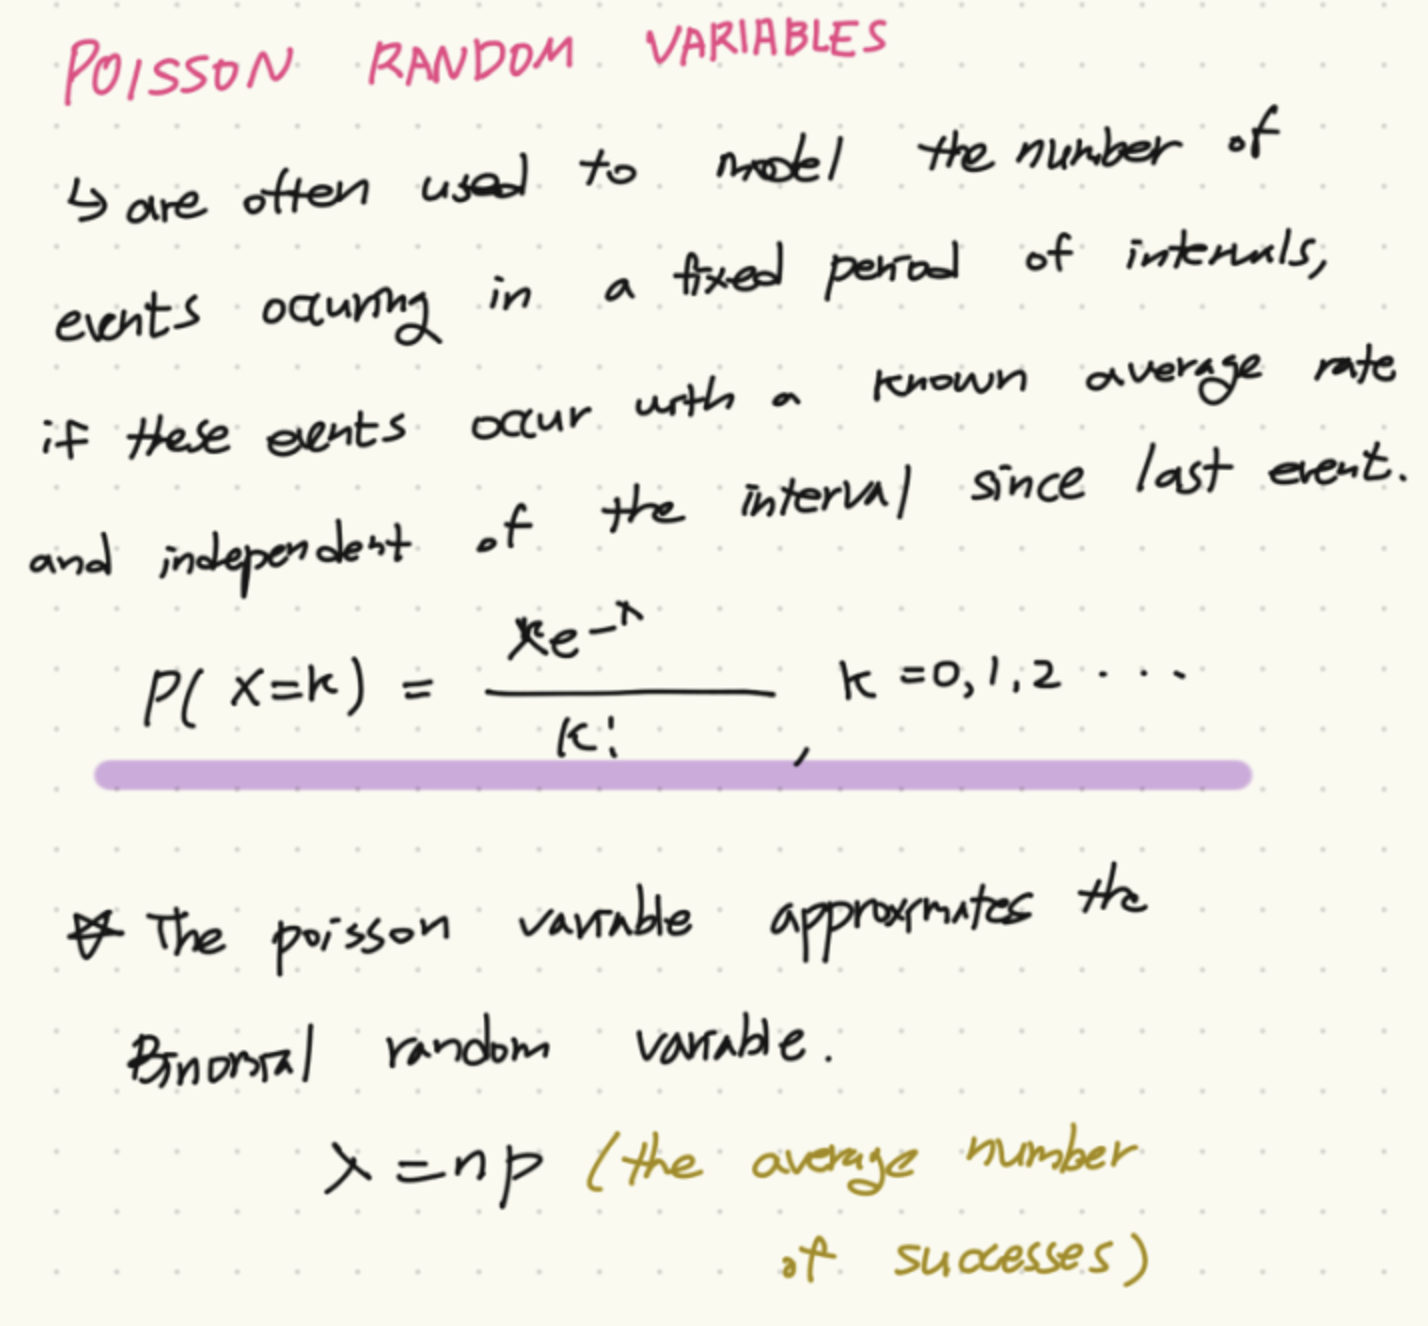 POISSON RANDOM VARIABLES
↳ are often used to model the number of
events ocurring in a fixed period of intervals,
if these events occur with a known average rate
and independent of the interval since last event.
P( X=k) = λᵏe⁻ᵏ / k! , k =0,1,2 ....
☆ The poisson variable approximates the
Binomial random variable.
λ = np (the average number
of successes)